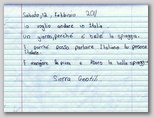 Sabato, 12, Febbraio 2011
Io voglio andare in Italia
un giorno, perché é bella la spiaggia.
É perché posso parlare Italiano la persone
Italiane.
É mangiare la pizza e vicino la bella spiaggia.
Sierra